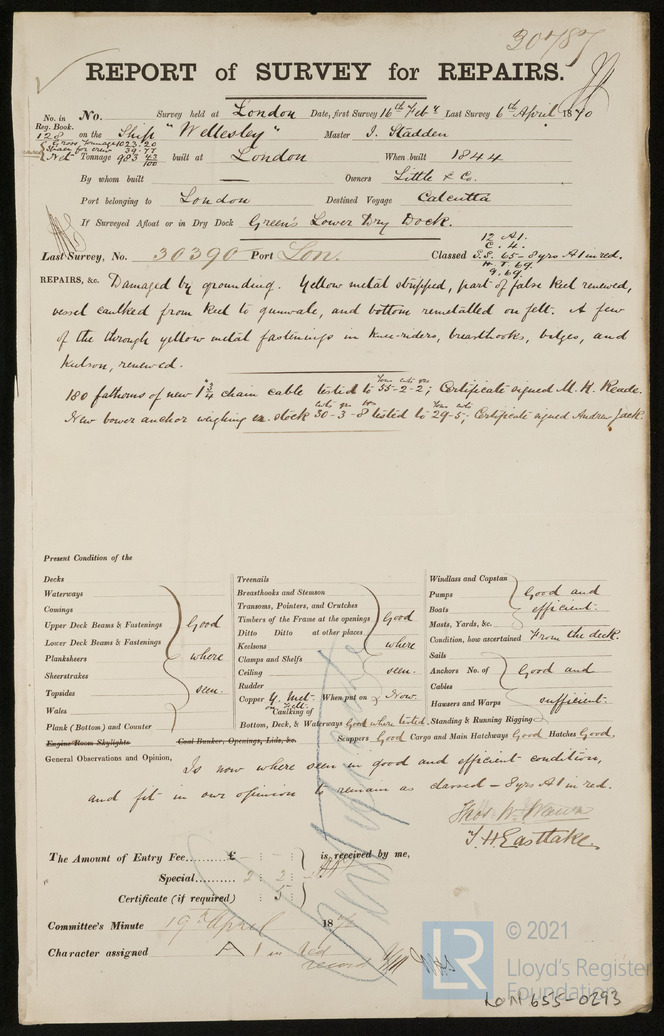 30787
REPORT of SURVEY for REPAIRS.
No. in Reg. Book. No. Survey held at London Date, first Survey 16th Feby Last Survey 6th April 1870
128 on the Ship "Wellesley" Master I. Stadden
Gross Tonnage 1023.20
Space for crew 39.77
Net Tonnage 983 43/100 built at London When built 1844
By whom built — Owners Little & Co.
Port belonging to London Destined Voyage Calcutta
If Surveyed Afloat or in Dry Dock Green's Lower Dry Dock.
Last Survey, No. 30390 Port Lon. Classed
12 A1.
C. 4.
S.S. 65-8yrs A1 in red.
H. T. 69.
9. 69.
REPAIRS, &c. Damaged by grounding. Yellow metal stripped, part of false keel renewed,
vessel caulked from keel to gunwale, and bottom remetalled on felt. A few
of the through yellow metal fastenings in knee-riders, breasthooks, bilges, and
keelson, renewed.
180 fathoms of new 1 3/4 chain cable tested to 55-2-2; Certificate signed M. H. Reade.
New bower anchor weighing ex. stock 30-3-8 tested to 29-5; Certificate signed Andrew Jack.
Present Condition of the
Decks
Waterways
Comings
Upper Deck Beams & Fastenings
Lower Deck Beams & Fastenings
Planksheers
Sheerstrakes
Topsides
Wales
Plank (Bottom) and Counter
Good
where
seen
Engine Room Skylights Coal Bunker, Openings, Lids, &c.
Treenails
Breasthooks and Stemson
Transoms, Pointers, and Crutches
Timbers of the Frame at the openings
Ditto Ditto at other places
Keelsons
Clamps and Shelfs
Ceiling
Rudder
Good
where
seen.
Copper Y. Met. on felt. When put on Now.
Caulking of
Bottom, Deck, & Waterways Good where tested.
Windlass and Capstan
Pumps
Boats
Masts, Yards, &c.
Good and
efficient.
Condition, how ascertained From the deck.
Sails
Anchors No. of
Cables
Hausers and Warps
Standing & Running Rigging
Good and
sufficient.
Scuppers Good Cargo and Main Hatchways Good Hatches Good.
General Observations and Opinion, Is now where seen in good and efficient condition,
and fit in our opinion to remain as classed - 8yrs A1 in red.
T. H. Eastlake.
The Amount of Entry Fee......£ — : — : is received by me,
Special...... 2 : 2 :
Certificate (if required) : 5 :
Committee's Minute 19th April 1870
Character assigned A 1 in red
record
© 2021
Lloyd's Register
Foundation
LON 655-0293